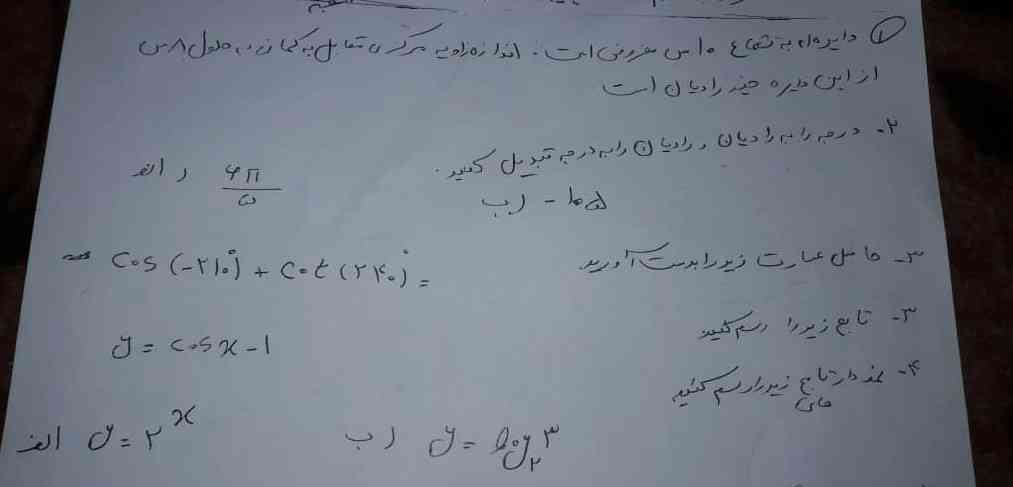 ① دایره‌ای به شعاع ۱۰ س مفروض است. اندازه زاویه مرکزی مقابل به کمانی به طول ۸ س
از این دایره چند رادیان است
۲- درجه را به رادیان و رادیان را به درجه تبدیل کنید.
الف) ۴π/۵ ب) -۱۰۵
۳- حاصل عبارت زیر را بدست آورید cos (-۲۱۰°) + cot (۲۴۰°) =
۳- تابع زیر را رسم کنید y = cosx - 1
۴- نمودار تابع های زیر را رسم کنید
الف y = ۲^x ب) y = log₂ ۳